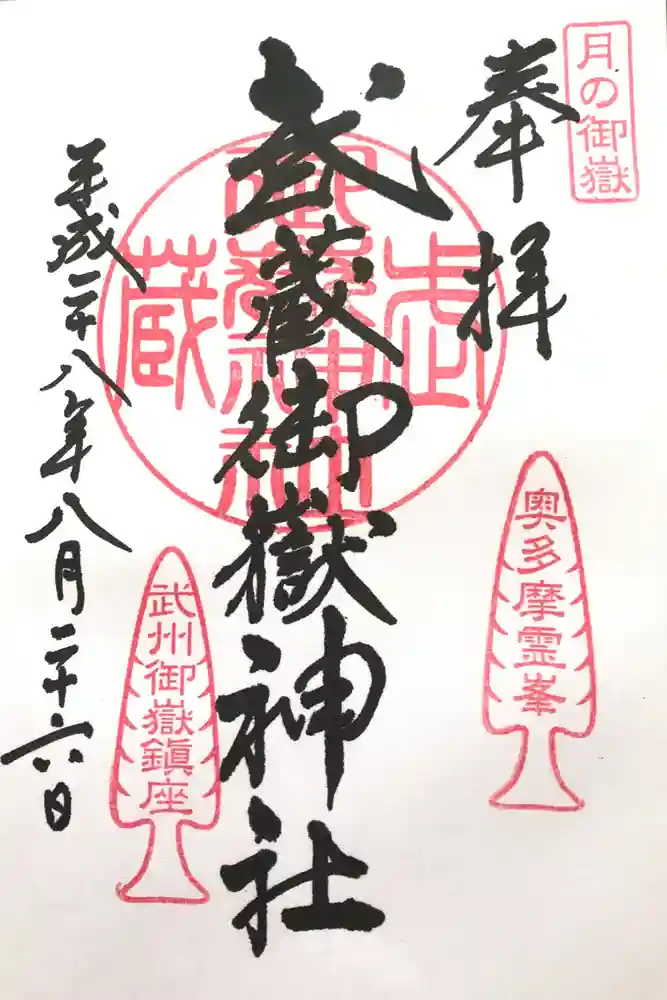 月の御嶽
奉拝
奥多摩霊峯
武蔵御嶽神社
武蔵
御嶽神社
武州御嶽鎮座
平成二十八年八月二十六日